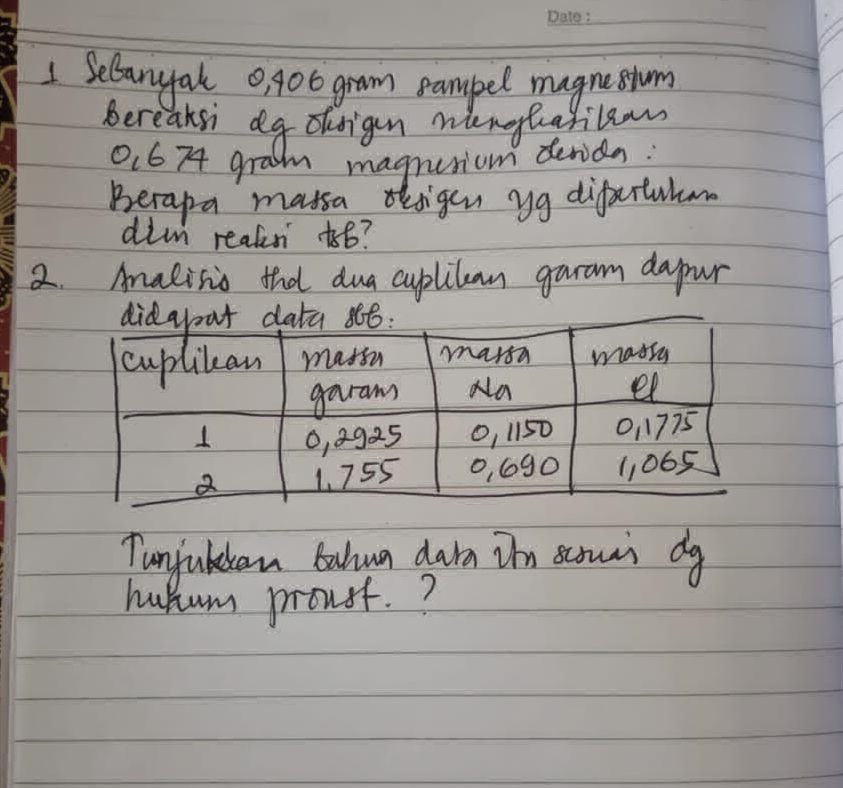 Date :
1 Sebanyak 0,406 gram sampel magnesium
bereaksi dg oksigen menghasilkan
0,674 gram magnesium oksida :
Berapa massa oksigen yg diperlukan
dlm reaksi tsb?
2. Analisis thd dua cuplikan garam dapur
didapat data sbb:
cuplikan massa garam massa Na massa Cl
1 0,2925 0,1150 0,1775
2 1,755 0,690 1,065
Tunjukkan bahwa data itu sesuai dg
hukum proust. ?